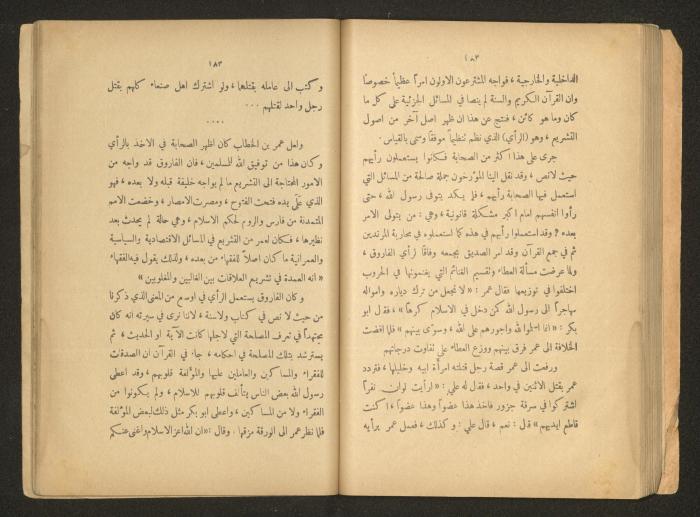 ١٨٢
الداخلية والخارجية ، فواجه المشترعون الاولون امراً عظيماً خصوصاً
وان القرآن الكريم والسنة لم ينصا في المسائل الجزئية على كل ما
كان وما هو كائن ، فنتج عن هذا ان ظهر اصل آخر من اصول
التشريع ، وهو (الرأي) الذي نظم تنظيماً موفقاً وسمي بالقياس .
جرى على هذا اكثر من الصحابة فكانوا يستعملون رأيهم
حيث لا نص ، وقد نقل الينا المؤرخون جملة صالحة من المسائل التي
استعمل فيها الصحابة رأيهم ، فلم يكد يتوفى رسول الله ، حتى
رأوا انفسهم امام اكبر مشكلة قانونية ، وهي : من يتولى الامر
بعده ? وقد استعملوا رأيهم في هذه كما استعملوه في محاربة المرتدين
ثم في جمع القرآن وقد امر الصديق بجمعه وفاقاً لرأي الفاروق ،
ولما عرضت مسألة العطاء وتقسيم الغنائم التي يغنمونها في الحروب
اختلفوا في توزيعها فقال عمر : « لا نجعل من ترك دياره وامواله
مهاجراً الى رسول الله كمن دخل في الاسلام كرهاً » ، فقال ابو
بكر : « انما اسلموا لله واجورهم على الله ، وسوّى بينهم » فلما افضت
الخلافة الى عمر فرق بينهم ووزع العطاء على تفاوت درجاتهم
ورفعت الى عمر قصة رجل قتلته امرأة ابيه وخليلها ، فتردد
عمر بقتل الاثنين في واحد ، فقال له علي : « ارأيت لو ان نفراً
اشتركوا في سرقة جزور فاخذ هذا عضواً وهذا عضواً ، اكنت
قاطع ايديهم » قال : نعم ، قال علي : وكذلك ، فعمل عمر برأيه
١٨٣
وكتب الى عامله بقتلها ، ولو اشترك اهل صنعاء كلهم بقتل
رجل واحد لقتلهم ...
....
ولعل عمر بن الخطاب كان اظهر الصحابة في الاخذ بالرأي
وكان هذا من توفيق الله للمسلمين ، فان الفاروق قد واجه من
الامور المحتاجة الى التشريع ما لم يواجه خليفة قبله ولا بعده ، فهو
الذي على يده فتحت الفتوح ، ومصرت الامصار ، وخضعت الامم
المتمدنة من فارس والروم لحكم الاسلام ، وهي حالة لم يحدث بعد
نظيرها ، فكان لعمر من التشريع في المسائل الاقتصادية والسياسية
والعمرانية ما كان اصلاً للفقهاء من بعده ، ولذلك يقول فيه الفقهاء
« انه العمدة في تشريع العلاقات بين الغالبين والمغلوبين »
وكان الفاروق يستعمل الرأي في اوسع من المعنى الذي ذكرنا
من حيث لا نص في كتاب ولا سنة ، لاننا نرى في سيرته انه كان
مجتهداً في تعرف المصلحة التي لاجلها كانت الآية او الحديث ، ثم
يسترشد بتلك المصلحة في احكامه ، جاء في القرآن ان الصدقات
للفقراء والمساكين والعاملين عليها والمؤلفة قلوبهم ، وقد اعطى
رسول الله بعض الناس يتألف قلوبهم للاسلام ، ولم يكونوا من
الفقراء ولا من المساكين ، واعطى ابو بكر مثل ذلك لبعض المؤلفة
فلما نظر عمر الى الورقة مزقها . وقال : « ان الله اعز الاسلام واغنى عنكم